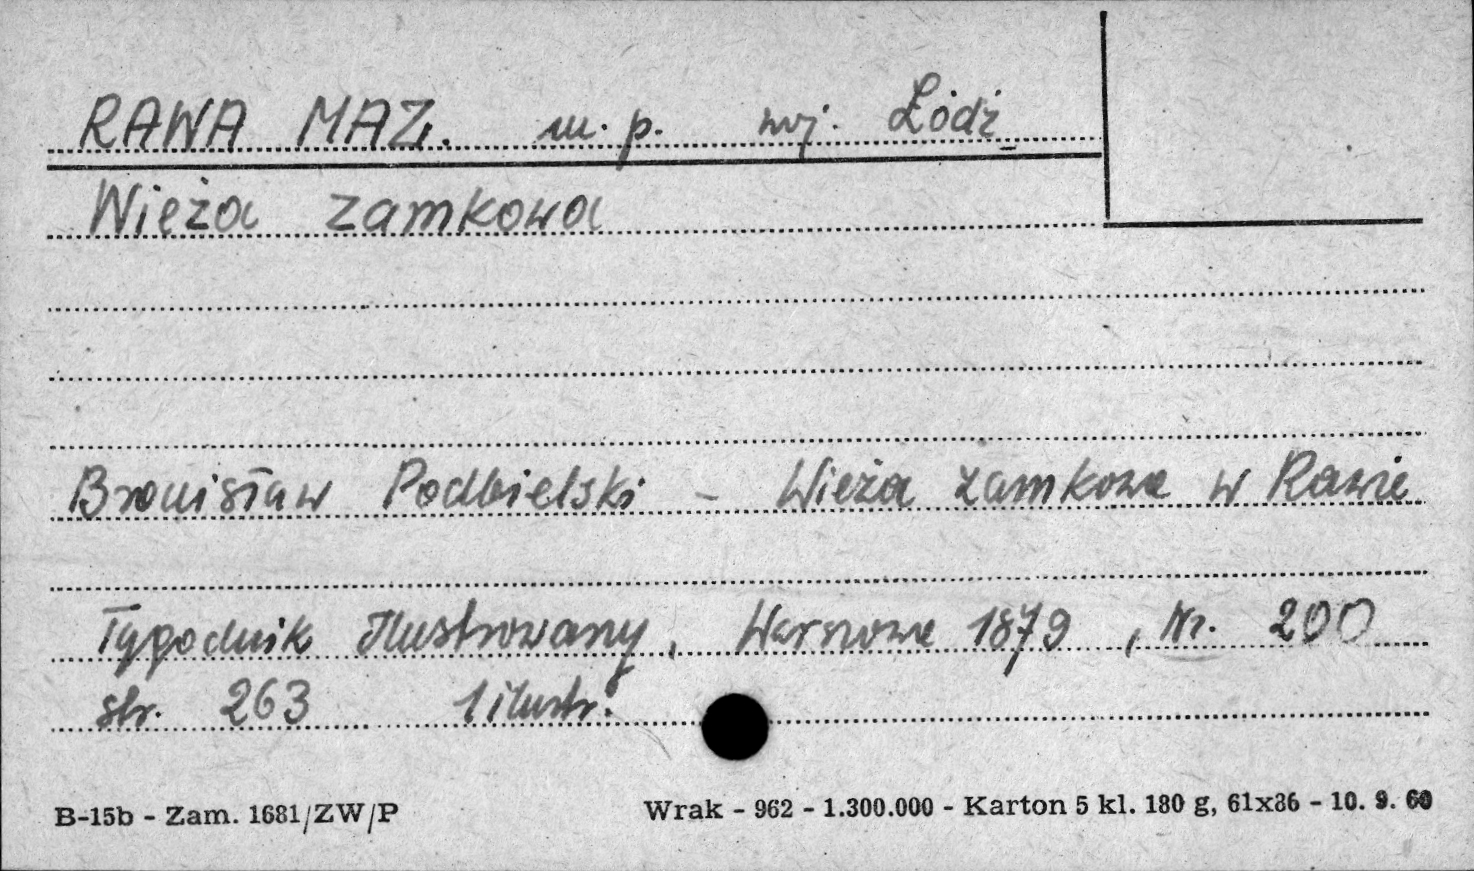 RAWA MAZ. m. p. woj. Łódź
Wieża zamkowa
Bronisław Podbielski - Wieża zamkowa w Rawie
Tygodnik Ilustrowany, Warszawa 1879, Nr. 200
str. 263 1 ilustr.
B-15b - Zam. 1681/ZW/P Wrak - 962 - 1.300.000 - Karton 5 kl. 180 g, 61x86 - 10. 9. 60